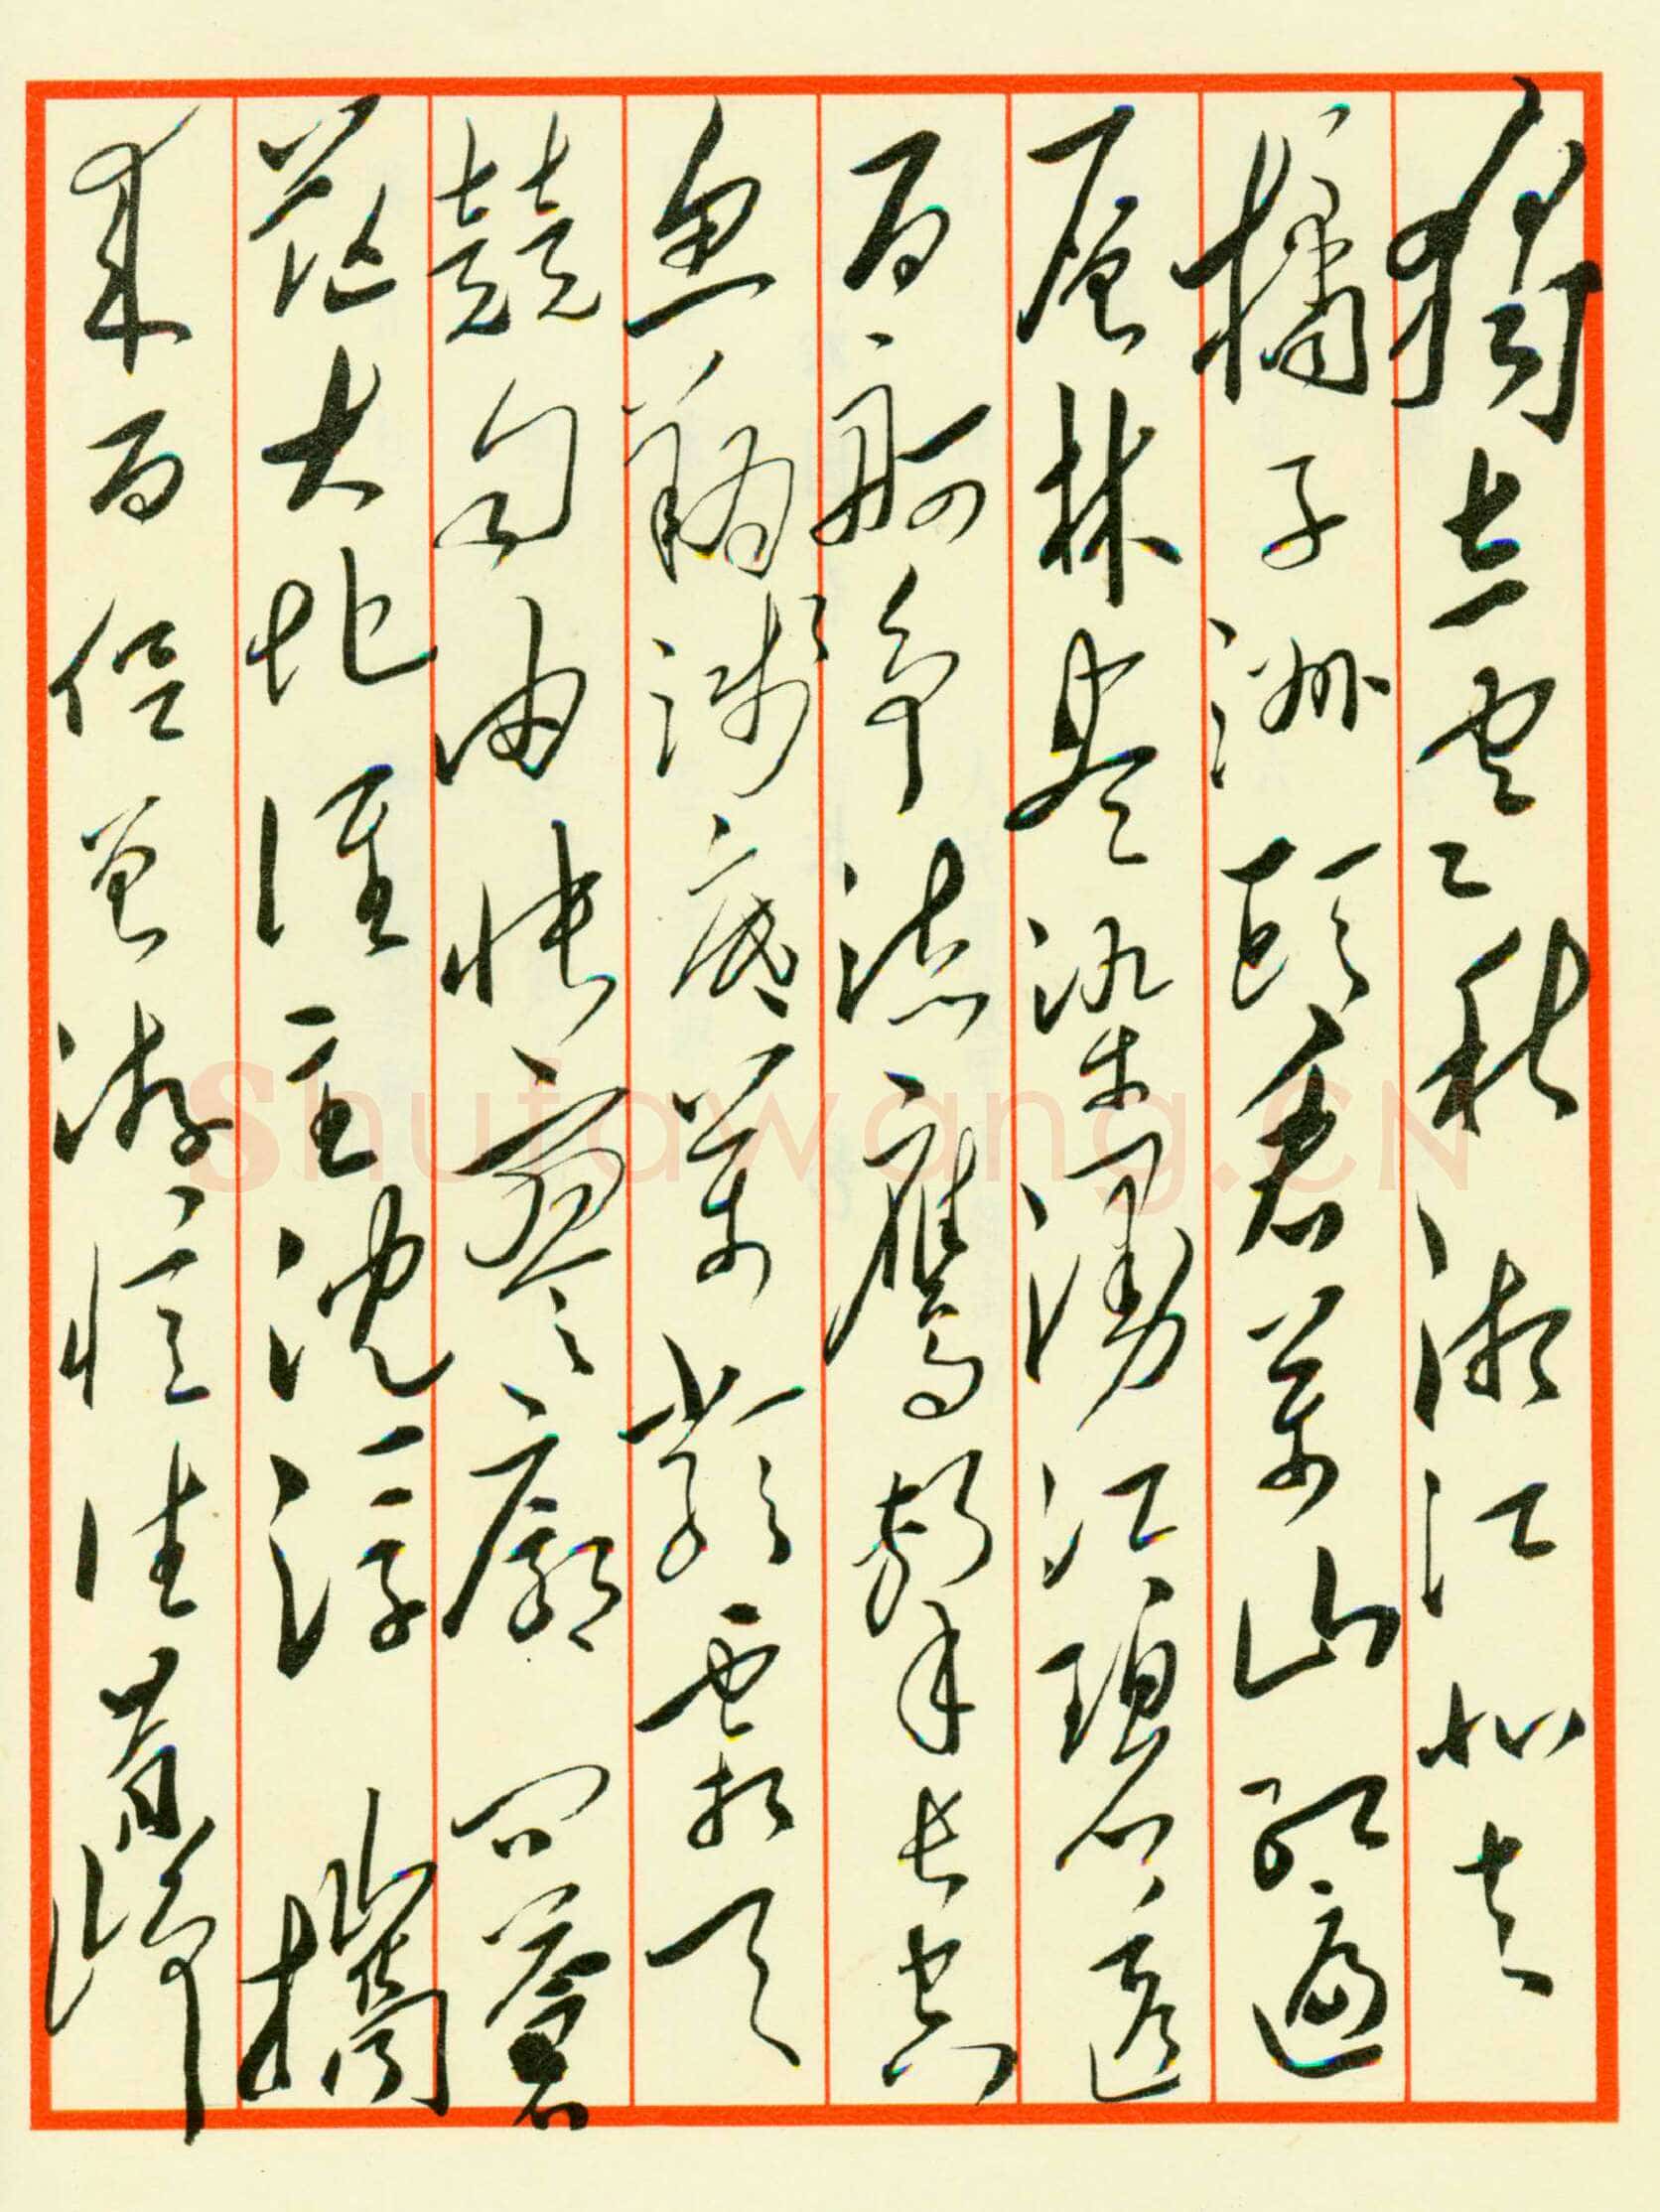 獨立寒秋湘江北去
橘子洲頭看萬山紅遍
層林盡染漫江碧透
百舸爭流鷹擊長空
魚翔淺底萬類霜天
競自由悵寥廓問蒼
茫大地誰主沈浮攜
來百侶曾游憶往昔崢
Shufawang.CN